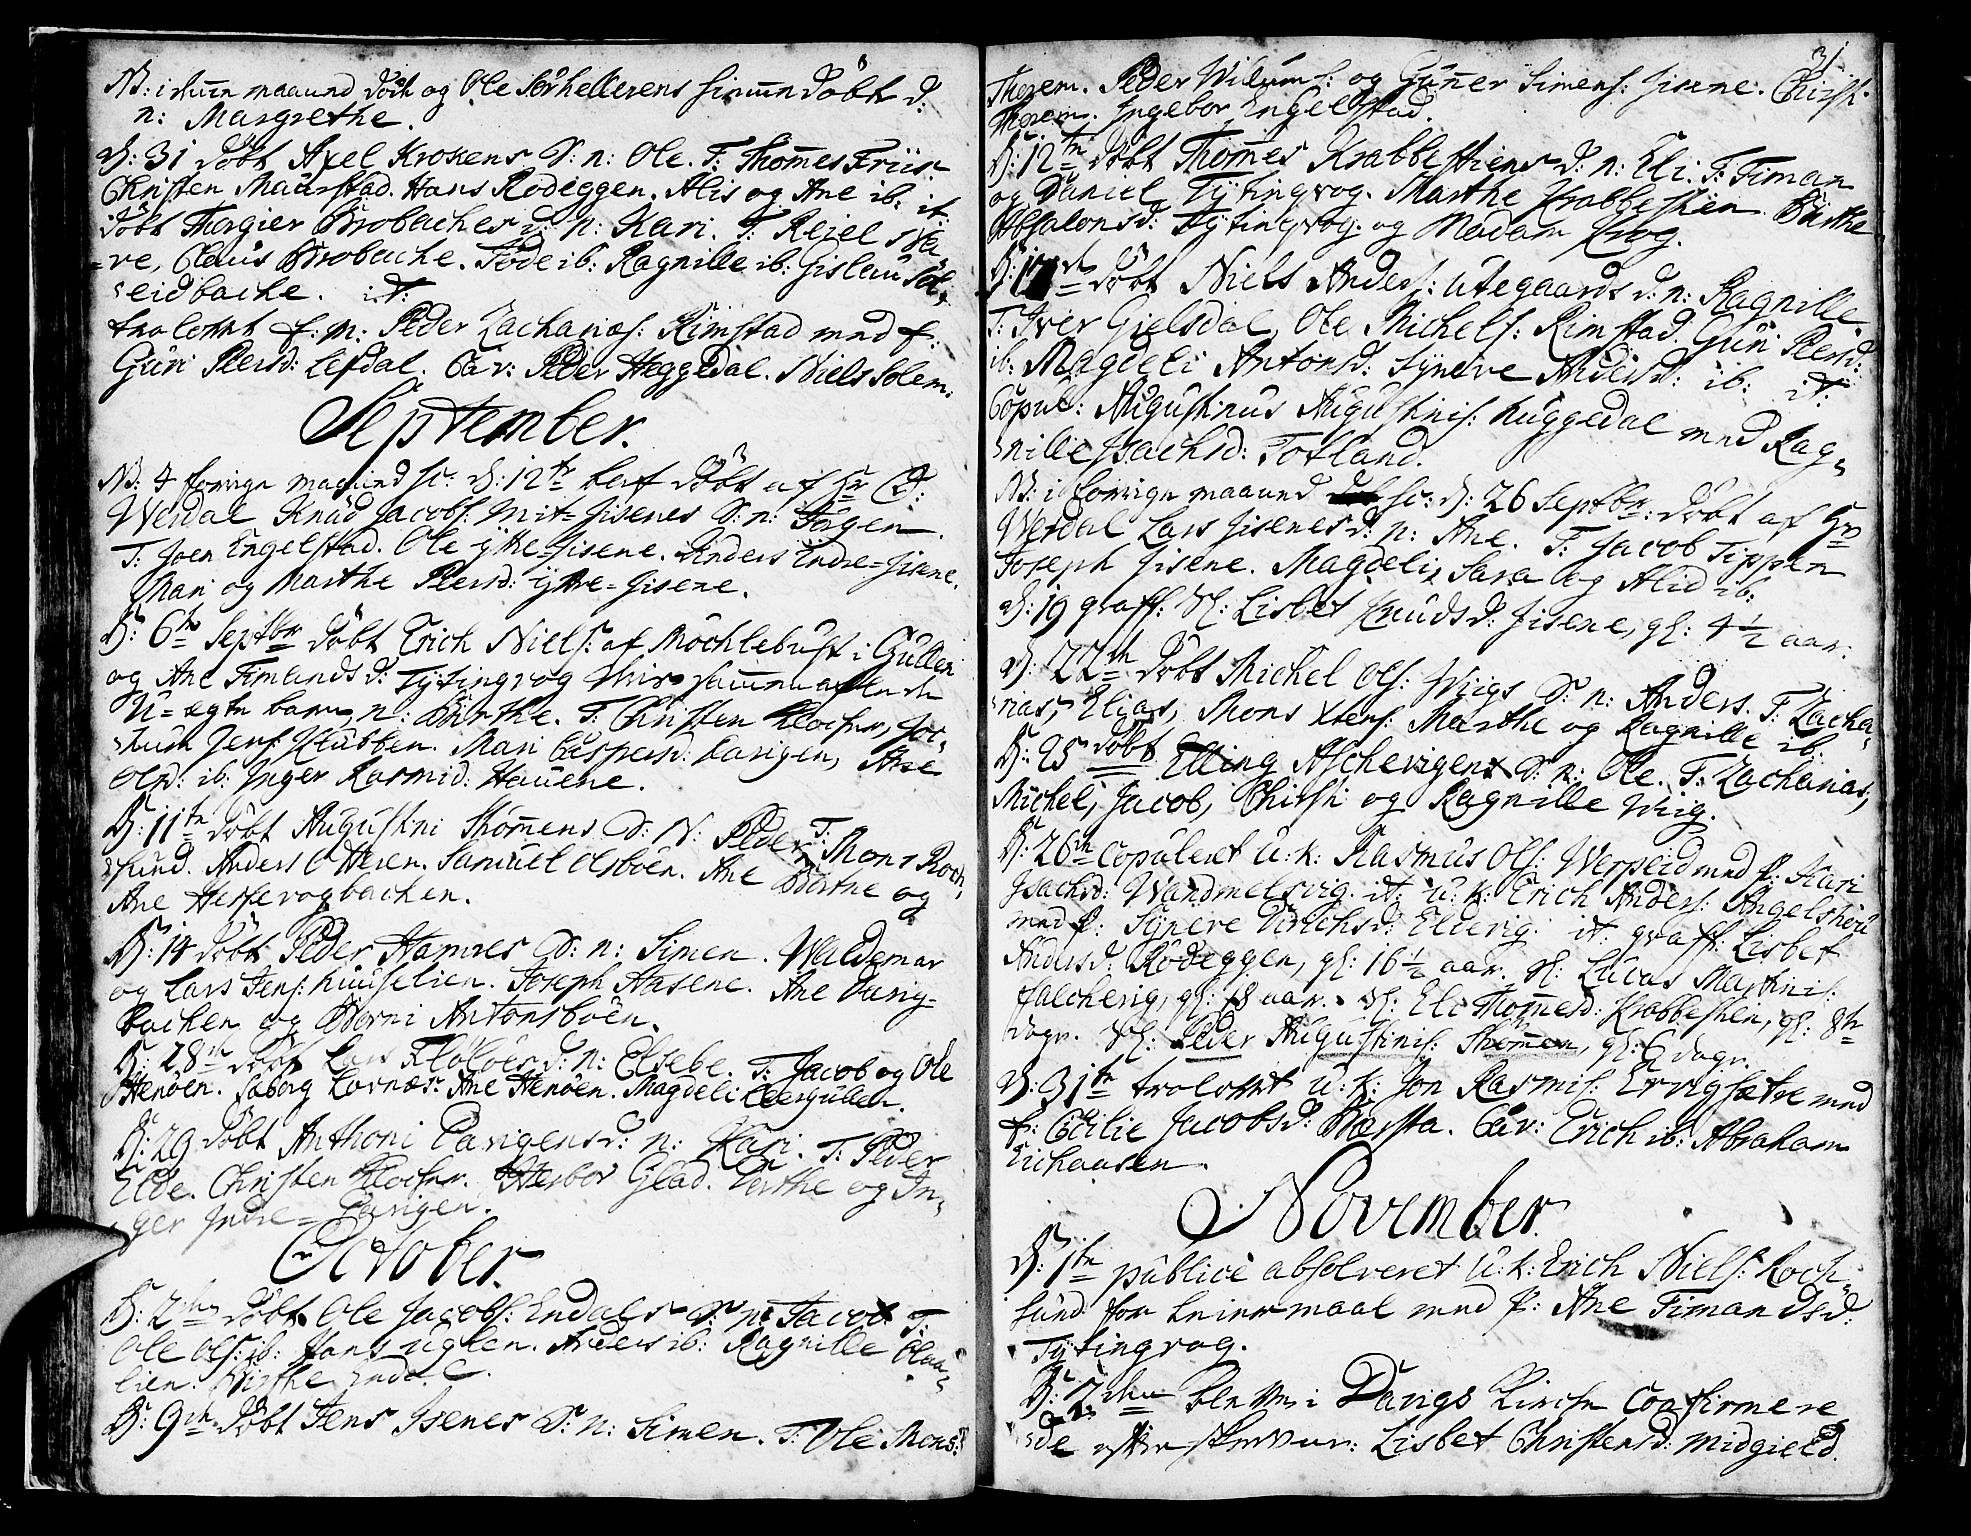 NB: i denne maaned döbt og Ole Sörhellerens hiemme döbte d:
n: Margrethe.
D: 31 döbt Axel Krokens S: n: Ole. T: Thommes Friis.
Christen Maurstad. Hans Rödeggen. Alis og Ane ib. it.
döbt Thorgier Brobaches d: n: Kari. T: Reiel Sva-
re, Claus Brobache. Tode ib: Ragnille ib: Gislau Söl-
eidbache. it:
trolovet k: m: Peder Zachariæs: Rimstad med f:
Guri Persd: Lefdal. Cav: Peder Heggedal. Niels Solem.
September.
NB: I forrige maaned sc: d: 12te bef döbt af Hr C:
Werdal Knud Jacobs: Mit-Hisenes S: n: Jörgen.
T: Joen Engelstad. Ole ytre-Hisene. Anders Indre-Hisene.
Mari og Marthe Persd: ytre-Hisene.
D: 6te Septbr döbt Erich Niels: af Mochlebust i Gullen
og Ane Timandsd: Tytingvog theris sammenaflede
U-ægte barn, n: Birthe. T: Christen Klocher, Joc-
hum Jens: Hubben. Mari Caspersd: Davigen, Ane
Olsd: ib: Inger Rasmid: Hauene.
D: 11te döbt Augustni Thommens S: N: Peder T: Mons Roch-
sund. Anders Otteren. Samuel Olsböen. Ane Birthe og
Ane Hessevogbachen.
D: 14 döbt Peder Hamres S: n: Simen. Waldemar
og Lars Jens: Huuselien. Joseph Aasene. Ane Davig-
bachen og Börni Antonsböen.
D: 28de döbt Lars Flölöes d: n: Elsebe. T: Jacob og Ole
Henöen. Saborg Lovnæs: Ane Henöen. Magdeli Leergullen.
D: 29 döbt Anthoni Davigens d: n: Kari. T: Peder
Elde. Christen Klocher. Herbor Glad. Birthe og In-
ger Indre-Davigen.
October.
D: 2den döbt Ole Jacobs: Endals S: n: Jacob T:
Ole Ols: ib: Hans Uglen. Anders ib: Ragnille Blaa-
lien. Birthe Endal.
D: 9de döbt Jens Isenes S: n: Simen. T: Ole Mons:
31
Thorem. Peder Wilums: og Guner Simens: Hisene. Christi
Thorem. Ingebor Engelstad.
D: 12te döbt Thommes Krabbestiens d: n: Eli. T: Timan
og Daniel Tytingvog. Marthe Krabbestien. Birthe
Absalonsd: Tytingvog. og Madam Krog.
D: 17de döbt Niels Anders: Utegaards d: n: Ragnille.
T: Iver Gielsdal, Ole Michels: Rimstad. Guri Persd:
ib: Magdeli Antonsd: Synève Andersd: ib: it:
Copul: Augustinus Augustinis: Huggedal med Rag-
nille Isachsd: Totland.
NB: i forrige maaned sc: d: 26 Septbr: döbt af Hr
Werdal Lars Hisenes d: n: Ane. T: Jacob Tippen
Joseph Hisene. Magdeli, Sara og Alid ib:
D: 19 graff: Sl: Lisbet Knudsd: Hisene, gl: 4 1/2 aar.
D: 22de döbt Michel Ols: Wiigs S: n: Anders. T: Zacha-
rias, Elias, Mons Xtens: Marthe og Ragnille ib:
D: 25 döbt Elling Aschevigens S: n: Ole. T: Zacharias,
Michel, Jacob, Christi og Ragnille Wiig.
D: 26de copuleret U: k: Rasmus Ols: Werpeid med p: Kari
Isachsd: Wandmelsvig. it: u: k: Erich Anders: Angelshou
med p: Synève Dirichsd: Eldevig. it: graff: Lisbet
Andersd: Rödeggen, gl: 16 1/2 aar. Sl: Lucas Martinis:
Falchevig, gl: 18 aar. Sl: Eli Thommesd: Krabbestien, gl: 8te
dage. Sl: Peder Augustinis: Thommen, gl: 6 dage.
D: 31te trolovet u: k: Jon Rasmis: Ervigsætre med
p: Cecilie Jacobsd: Börsta. Cav: Erich ib: Abraham
Erichausen.
November.
D: 1te publicè absolveret U: k: Erich Niels: Roch-
sund for leiermaal med p: Ane Timandsd:
Tytingvog.
D: 2den bleve i Davigs Kirche Confirmere-
de efterskrevne: Lisbet Christensd: Midgield.